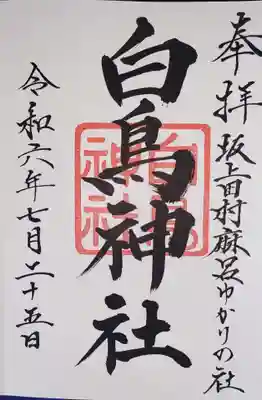 奉拝
坂上田村麻呂ゆかりの社
白鳥神社
白鳥神社
令和六年七月二十五日